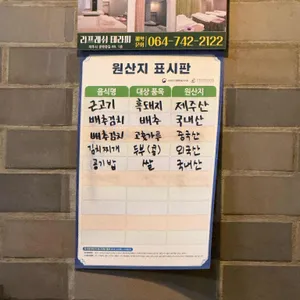 리프레싱 테라피
예약문의 064-742-2122
원산지 표시판
음식명 대상 품목 원산지
근고기 흑돼지 제주산
배추김치 배추 국내산
배추김치 고춧가루 중국산
김치찌개 두부(콩) 외국산
공기밥 쌀 국내산